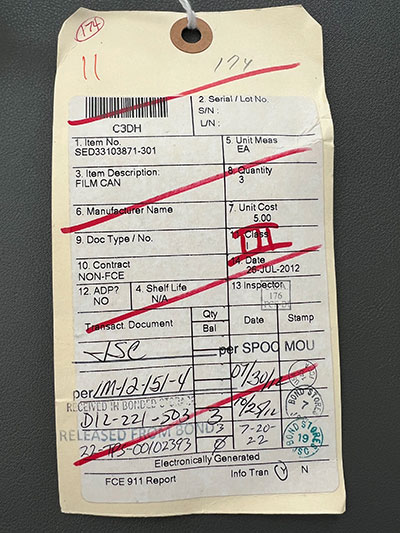 174
11 174
C3DH
2. Serial / Lot No.
S/N :
L/N :
1. Item No.
SED33103871-301
5. Unit Meas
EA
3. Item Description:
FILM CAN
8. Quantity
3
6. Manufacturer Name
7. Unit Cost
5.00
9. Doc Type / No.
15. Class
III
10. Contract
NON-FCE
14. Date
26-JUL-2012
12. ADP?
NO
4. Shelf Life
N/A
13 Inspector
176
Transact. Document
Qty
Bal
Date Stamp
JSC
per SPOC MOU
per IM-12-151-4
07/30/12
RECEIVED IN BONDED STORES
D12-221-503 3 10/25/12
BOND STORES
7
RELEASED FROM BOND
22-TPS-00102393 3 0 7-20-22
BOND STORES
19
JSC
Electronically Generated
FCE 911 Report Info Tran Y N